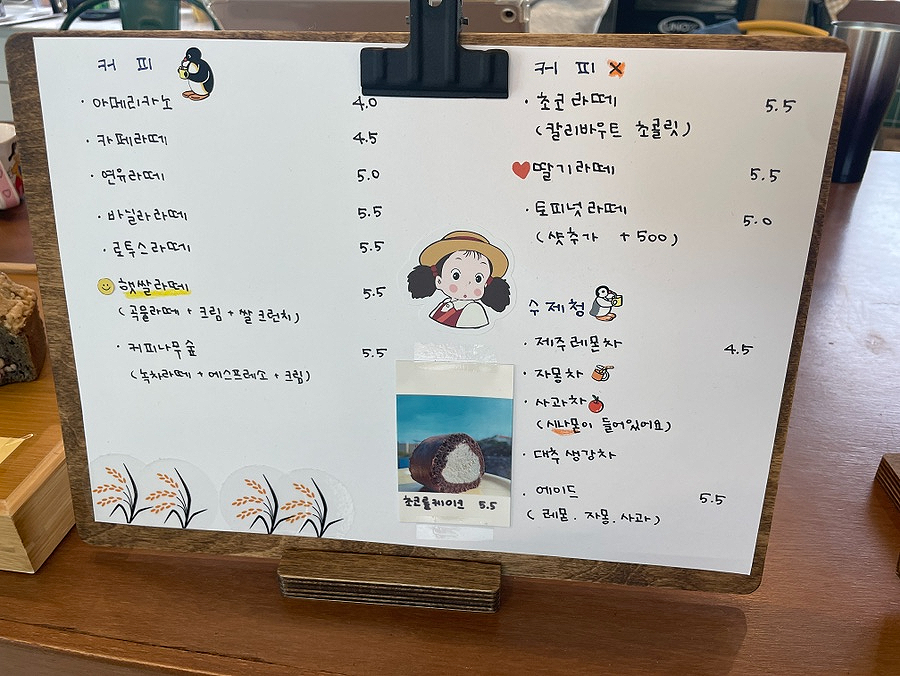 커 피
· 아메리카노 4.0
· 카페라떼 4.5
· 연유라떼 5.0
· 바닐라라떼 5.5
· 로투스라떼 5.5
햇쌀라떼 5.5
(곡물라떼 + 크림 + 쌀 크런치)
· 커피나무숲 5.5
(녹차라떼 + 에스프레소 + 크림)
커 피 x
· 초코라떼 5.5
(칼리바우트 초콜릿)
딸기라떼 5.5
· 토피넛라떼 5.0
(샷추가 +500)
수제청
· 제주레몬차 4.5
· 자몽차
· 사과차
(시나몬이 들어있어요)
· 대추생강차
· 에이드 5.5
(레몬. 자몽. 사과)
초코롤케이크 5.5